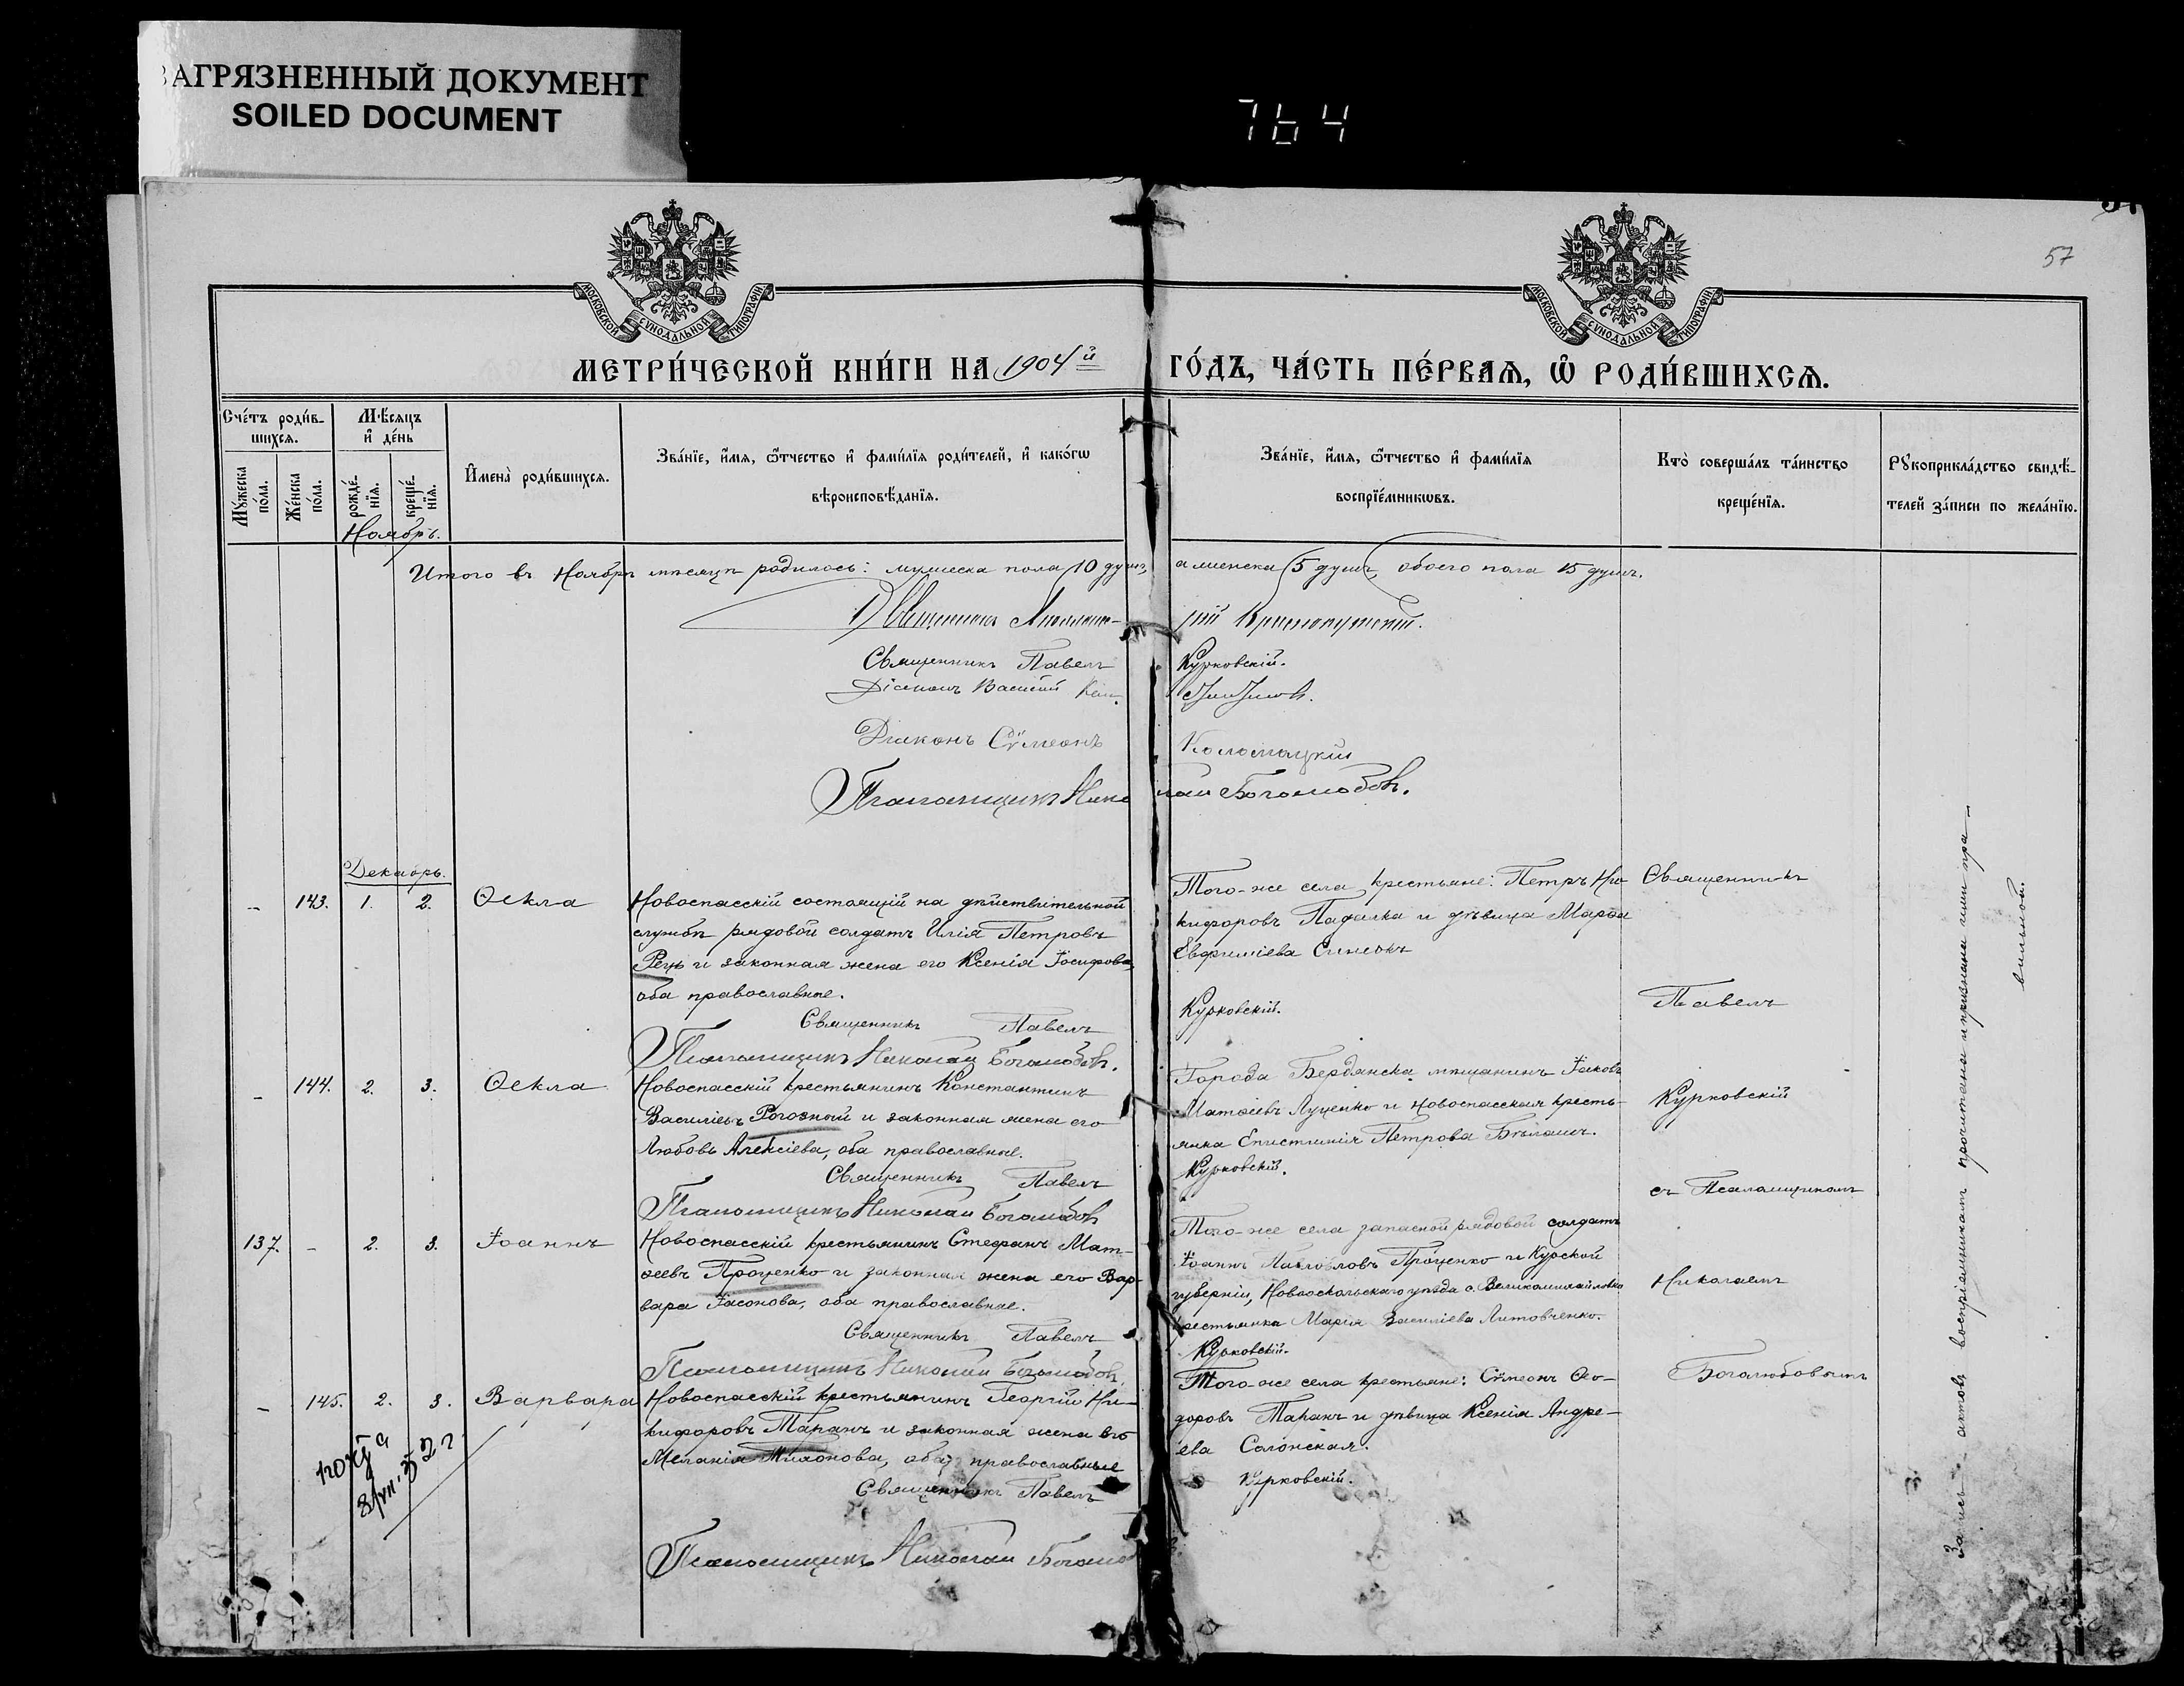 ЗАГРЯЗНЕННЫЙ ДОКУМЕНТ
SOILED DOCUMENT
764
57
МОСКОВСКОЙ СѴНОДАЛЬНОЙ ТИПОГРАФІИ
МОСКОВСКОЙ СѴНОДАЛЬНОЙ ТИПОГРАФІИ
МЕТРИ́ЧЕСКОЙ КНИ́ГИ НА 1904й ГО́ДЪ, ЧА́СТЬ ПЕ́РВАѦ, Ѽ РОДИ́ВШИХСѦ.
Сче́тъ роди́вшихсѧ.
Мꙋ́жеска по́ла.
Же́нска по́ла.
Мѣ́сѧцъ и҆ де́нь
рожде́нїѧ.
креще́нїѧ.
И҆мена̀ роди́вшихсѧ.
Зва́нїе, и҆́мѧ, ѻ҆́тчество и҆ фами́лїѧ роди́телей, и҆ како́гѡ
вѣроисповѣ́данїѧ.
Зва́нїе, и҆́мѧ, ѻ҆́тчество и҆ фами́лїѧ
воспрїе́мникѡвъ.
Кто̀ соверша́лъ та́инство
креще́нїѧ.
Рꙋкоприкла́дство свидѣ́-
телей за́писи по жела́нїю.
Ноябрь.
Итого въ Ноябрѣ мѣсяцѣ родилось: мужеска пола 10 душъ, а женска 5 душъ, обоего пола 15 душъ.
Священникъ
Священникъ Павелъ Курковскій.
Діаконъ Василій
Діаконъ Сѵмеонъ Коломацкій
Псаломщикъ Николай Боголюбовъ.
Декабрь.
– 143. 1. 2. Ѳекла
Новоспасскій состоящій на дѣйствительной
службѣ рядовой солдатъ Илія Петровъ
Рець и законная жена его Ксенія Іосифова,
оба православные.
Священникъ Павелъ Курковскій.
Псаломщикъ Николай Боголюбовъ.
Того-же села крестьяне: Петръ Ни-
кифоровъ Падалка и дѣвица Марѳа
Евфиміева Синеокъ
Священникъ
Павелъ
Курковскій
съ Псаломщикомъ
Николаемъ
Боголюбовымъ
– 144. 2. 3. Ѳекла
Новоспасскій крестьянинъ Константинъ
Василіевъ Рогозный и законная жена его
Любовь Алексіева, оба православные.
Священникъ Павелъ Курковскій.
Псаломщикъ Николай Боголюбовъ
Города Бердянска мѣщанинъ Іаковъ
Матѳіевъ Луценко и Новоспасская кресть-
янка Епистимія Петрова Бѣлашъ.
137. – 2. 3. Іоаннъ
Новоспасскій крестьянинъ Стефанъ Мат-
ѳеевъ Проценко и законная жена его Вар-
вара Іасонова, оба православные.
Священникъ Павелъ Курковскій.
Псаломщикъ Николай Боголюбовъ.
Того-же села запасной рядовой солдатъ
Іоаннъ Проценко и Курской
губерніи, Новооскольскаго уѣзда с. Великомихайловки
крестьянка Марія Василіева Литовченко.
– 145. 2. 3. Варвара
Новоспасскій крестьянинъ Георгій Ни-
кифоровъ Таранъ и законная жена его
Меланія Тихонова, оба православные
Священникъ Павелъ Курковскій.
Псаломщикъ Николай
Того-же села крестьяне: Сѵмеонъ Ѳео-
доровъ Таранъ и дѣвица Ксенія Андре-
ева Салонская.
Запись актовъ воспріемникамъ прочитана и признана ими пра-
вильной.